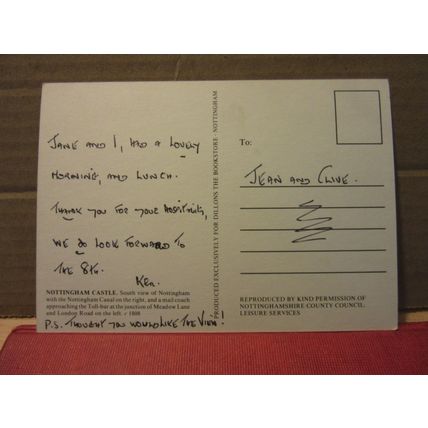 JANE AND I, HAD A LOVELY
MORNING, AND LUNCH.
THANK YOU FOR YOUR HOSPITALITY,
WE DO LOOK FORWARD TO
THE 8TH.
KEN.
NOTTINGHAM CASTLE. South view of Nottingham
with the Nottingham Canal on the right, and a mail coach
approaching the Toll-bar at the junction of Meadow Lane
and London Road on the left. c 1808
P.S. THOUGHT YOU WOULD LIKE THE VIEW.
PRODUCED EXCLUSIVELY FOR DILLONS THE BOOKSTORE - NOTTINGHAM
To:
JEAN AND CLIVE.
REPRODUCED BY KIND PERMISSION OF
NOTTINGHAMSHIRE COUNTY COUNCIL.
LEISURE SERVICES